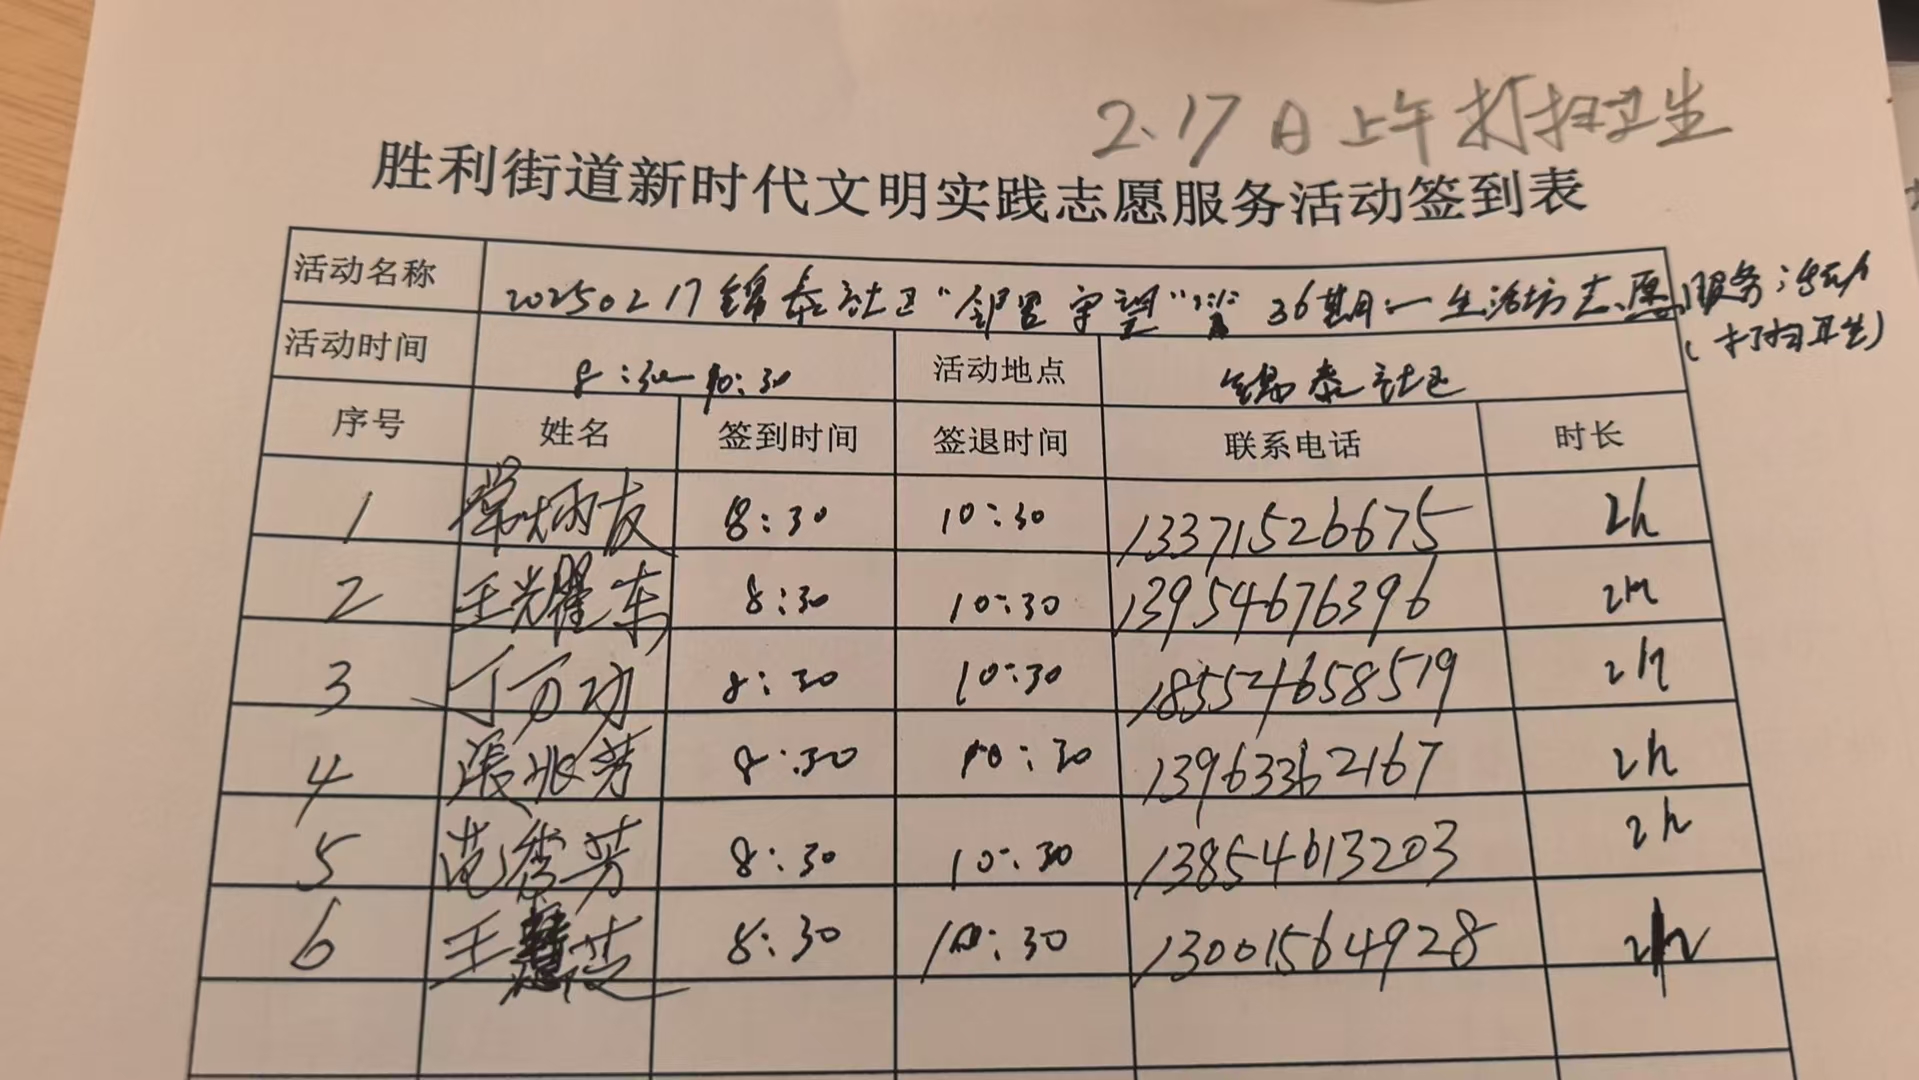 2.17日上午打扫卫生
胜利街道新时代文明实践志愿服务活动签到表
活动名称 20250217锦泰社区"邻里守望"第36期:一生活坊志愿服务活动
(打扫卫生)
活动时间 8:30—10:30 活动地点 锦泰社区
序号 姓名 签到时间 签退时间 联系电话 时长
1 常炳友 8:30 10:30 13371526675 2h
2 王光耀东 8:30 10:30 13954676396 2h
3 丁万功 8:30 10:30 18554658519 2h
4 张兆芳 8:30 10:30 13963362167 2h
5 范秀芳 8:30 10:30 13854613203 2h
6 王慧芝 8:30 10:30 13001564928 2h